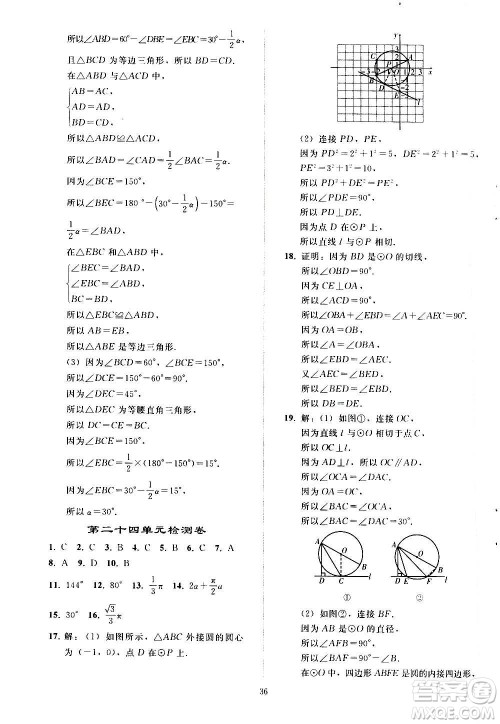 所以∠ABD=60°-∠DBE=∠EBC=30°-1/2α
且△BDC为等边三角形，所以 BD=CD.
在△ABD与△ACD中，
AB=AC,
AD=AD,
BD=CD.
所以△ABD≌△ACD.
所以∠BAD=∠CAD=1/2∠BAC=1/2α.
因为∠BCE=150°,
所以∠BEC=180°-(30°-1/2α)-150°
=1/2α.
在△EBC和△ABD中，
∠BEC=∠BAD,
∠EBC=∠ABD,
BC=BD.
所以△EBC≌△ABD.
所以 AB=EB.
所以△ABE是等边三角形.
（3）因为∠BCD=60°,∠BCE=150°,
所以∠DCE=150°-60°=90°.
所以∠DEC=45°
所以△DEC为等腰直角三角形.
所以 DC=CE=BC.
因为∠BCE=150°,
所以∠EBC=1/2×(180°-150°)=15°.
因为∠EBC=30°-1/2α=15°,
所以α=30°.
第二十四单元检测卷
1. C 2. C 3. D 4. C 5. C 6. C 7. A
8. A 9. D 10. C
11. 144° 12. 80° 13. 1/3π 14. 2α+1/2π
15. 30° 16. √3/3π
17. 解：（1）如图所示，△ABC外接圆的圆心
为(-1, 0)，点 D 在⊙P 上.
y
A
C
O
x
P
B
D
E
l
（2）连接 PD, PE,
因为 PD²=2²+1²=5, DE²=2²+1²=5,
PE²=3²+1²=10,
所以 PE²=PD²+DE².
所以∠PDE=90°.
所以 PD⊥DE.
因为点 D 在⊙P 上，
所以直线 l 与⊙P 相切.
18. 证明：因为 BD 是⊙O 的切线，
所以∠OBD=90°.
因为 CE⊥OA,
所以∠ACD=90°.
所以∠OBA+∠EBD=∠OAB+∠CEA=90°.
因为 OA=OB,
所以∠OAB=∠OBA.
所以∠EBD=∠CEA.
又∠CEA=∠BED,
所以∠EBD=∠BED.
所以 DB=DE.
19. 解：（1）如图①，连接 OC,
因为直线 l 与⊙O 相切于点 C,
所以 OC⊥l.
因为 AD⊥l,
所以 OC∥AD.
所以∠OCA=∠DAC.
因为 OA=OC,
所以∠BAC=∠OCA.
所以∠BAC=∠DAC=30°.
A
O
B
D
C
l
①
A
O
B
D
E
F
l
②
（2）如图②，连接 BF.
因为 AB 是⊙O 的直径，
所以∠AFB=90°.
所以∠BAF=90°-∠B.
在⊙O中，四边形 ABFE 是圆的内接四边形，
36